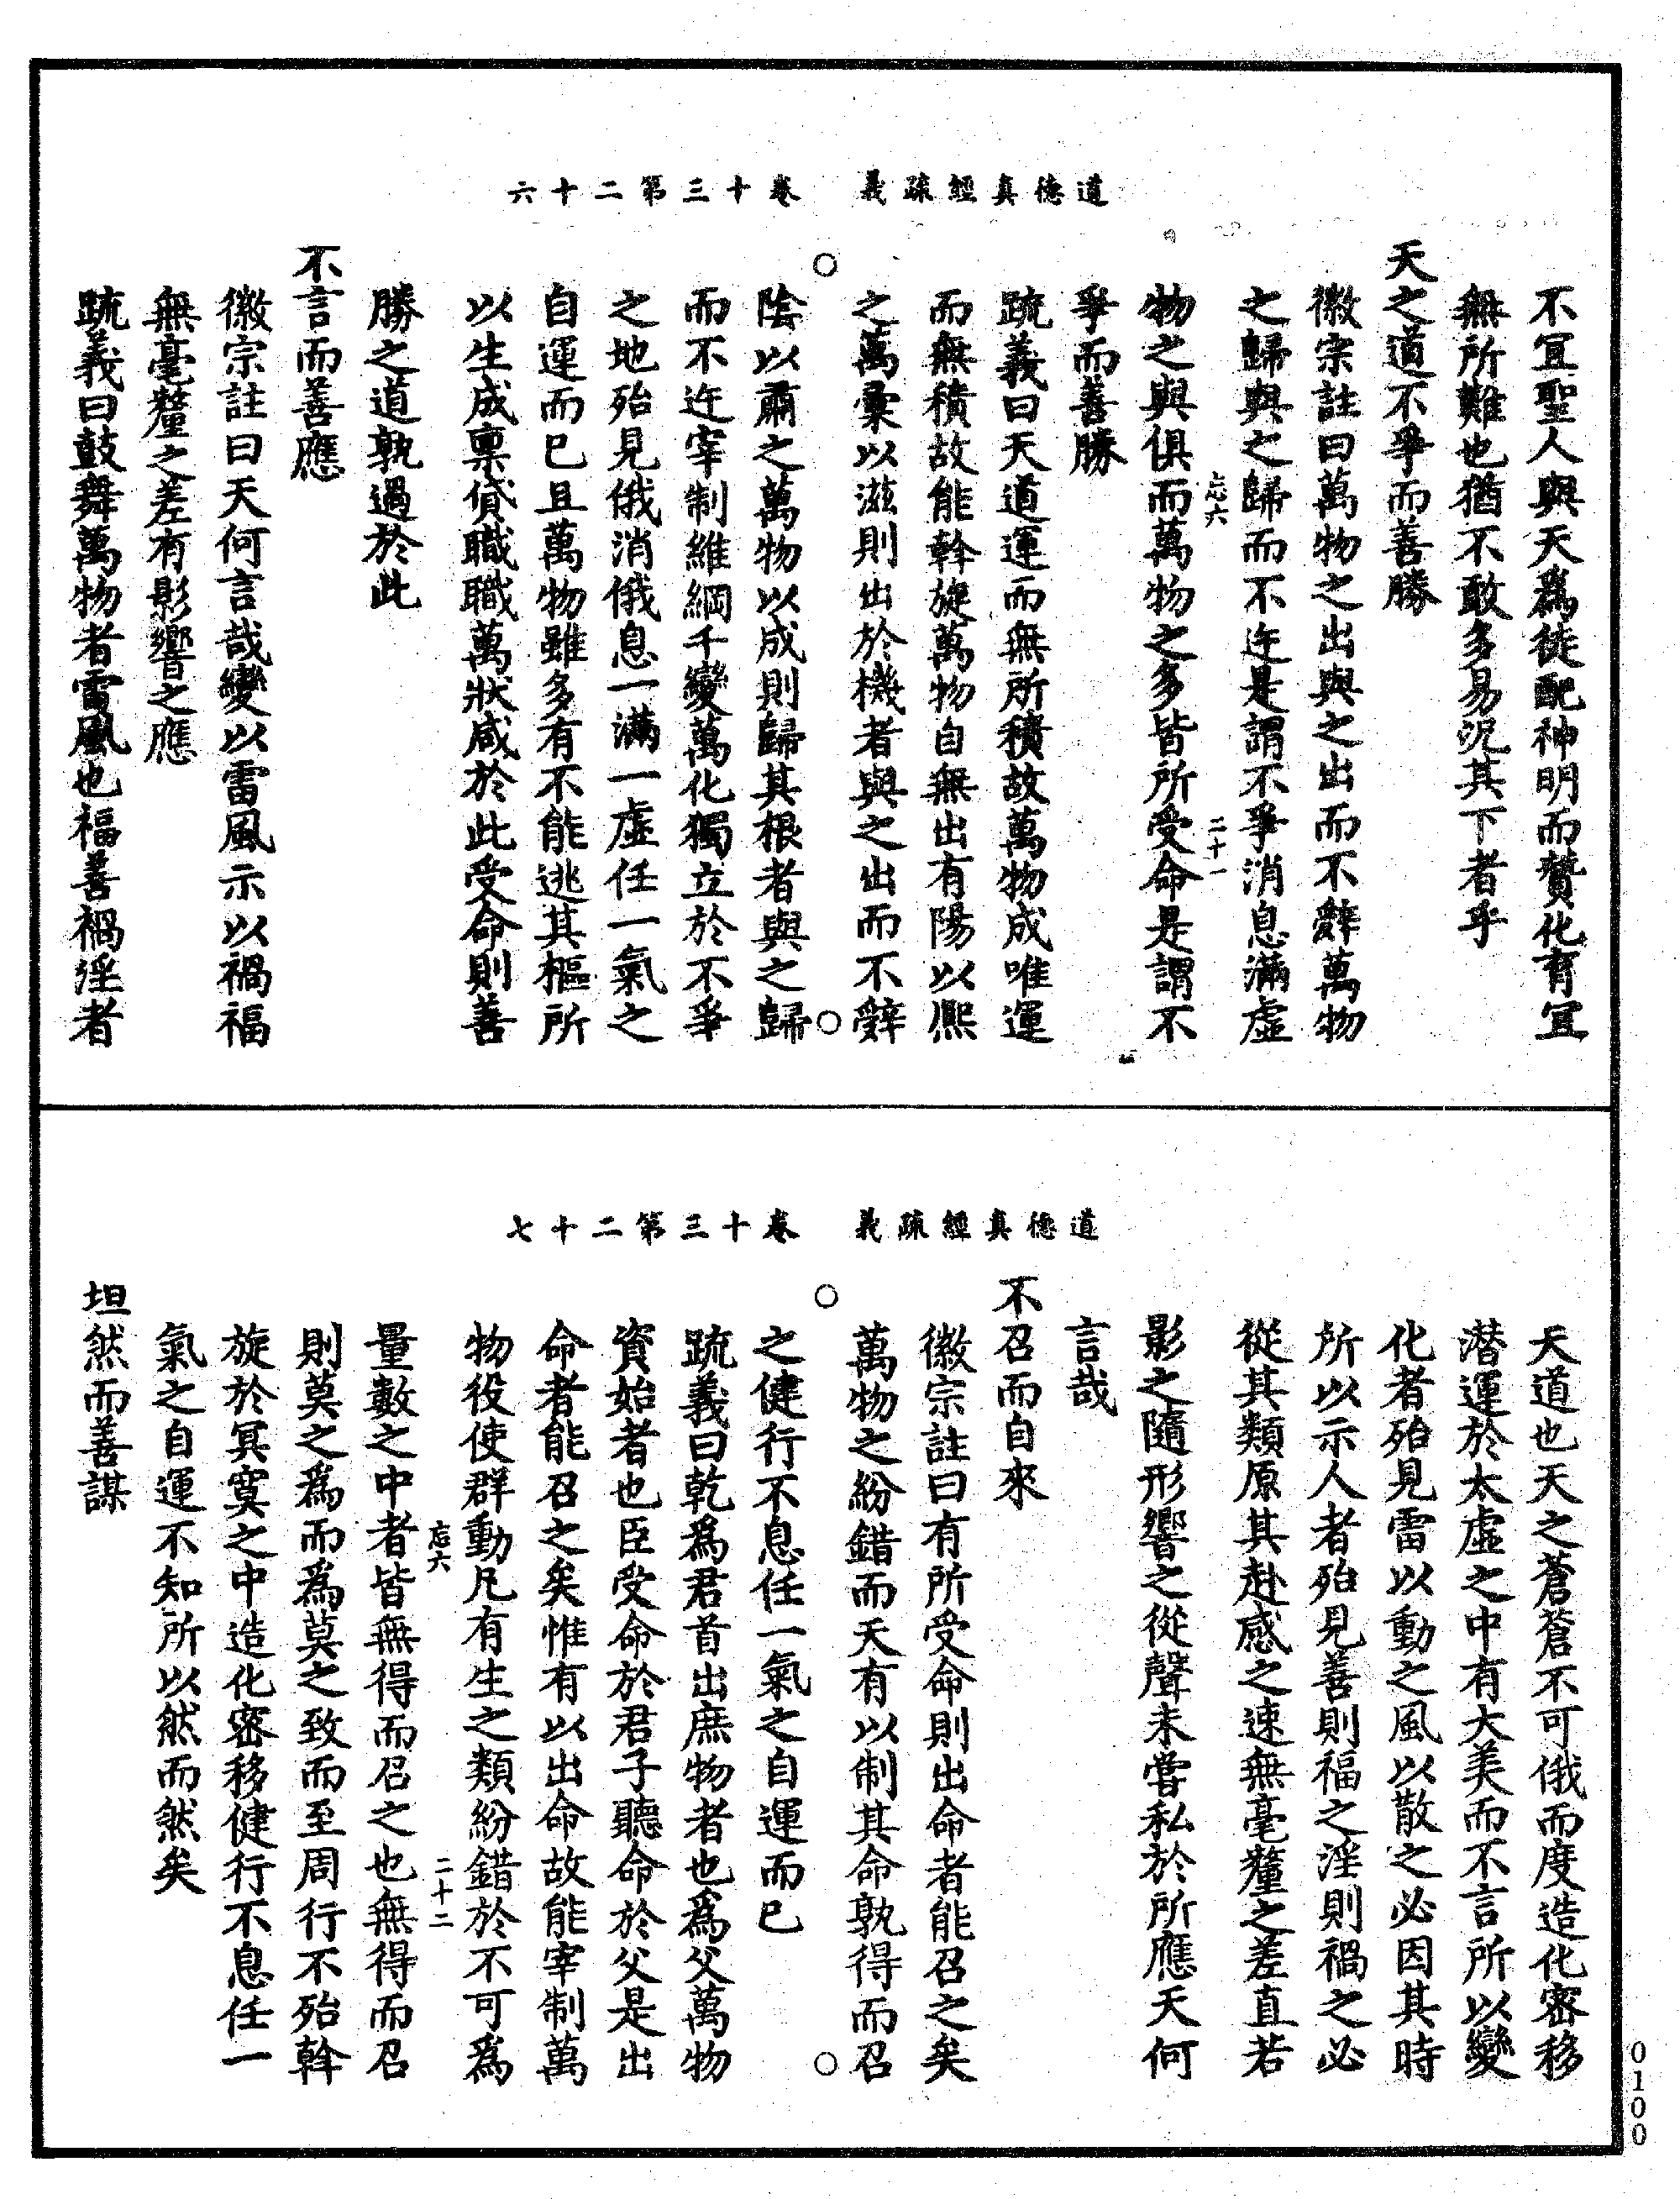 道德真經疏義　卷十三第二十六
不宜聖人與天爲徒配神明而贊化育宜
無所難也猶不敢多易況其下者乎
天之道不爭而善勝
徽宗註曰萬物之出與之出而不辭萬物
之歸與之歸而不迕是謂不爭消息滿虛
忘六　二十一
物之與俱而萬物之多皆所受命是謂不
爭而善勝
疏義曰天道運而無所積故萬物成唯運
而無積故能斡旋萬物自無出有陽以熈
之萬彙以滋則出於機者與之出而不辭
陰以肅之萬物以成則歸其根者與之歸
而不迕宰制維綱千變萬化獨立於不爭
之地殆見俄消俄息一滿一虛任一氣之
自運而已且萬物雖多有不能逃其樞所
以生成禀貸職職萬狀咸於此受命則善
勝之道孰過於此
不言而善應
徽宗註曰天何言哉變以雷風示以禍福
無毫釐之差有影響之應
疏義曰鼓舞萬物者雷風也福善禍淫者
道德真經疏義　卷十三第二十七
天道也天之蒼蒼不可俄而度造化密移
潜運於太虛之中有大美而不言所以變
化者殆見雷以動之風以散之必因其時
所以示人者殆見善則福之淫則禍之必
從其類原其赴感之速無毫釐之差直若
影之隨形響之從聲未嘗私於所應天何
言哉
不召而自來
徽宗註曰有所受命則出命者能召之矣
萬物之紛錯而天有以制其命孰得而召
之健行不息任一氣之自運而已
疏義曰乾爲君首出庶物者也爲父萬物
資始者也臣受命於君子聽命於父是出
命者能召之矣惟有以出命故能宰制萬
物役使群動凡有生之類紛錯於不可爲
忘六　二十二
量數之中者皆無得而召之也無得而召
則莫之爲而爲莫之致而至周行不殆斡
旋於冥寞之中造化密移健行不息任一
氣之自運不知所以然而然矣
坦然而善謀
0100